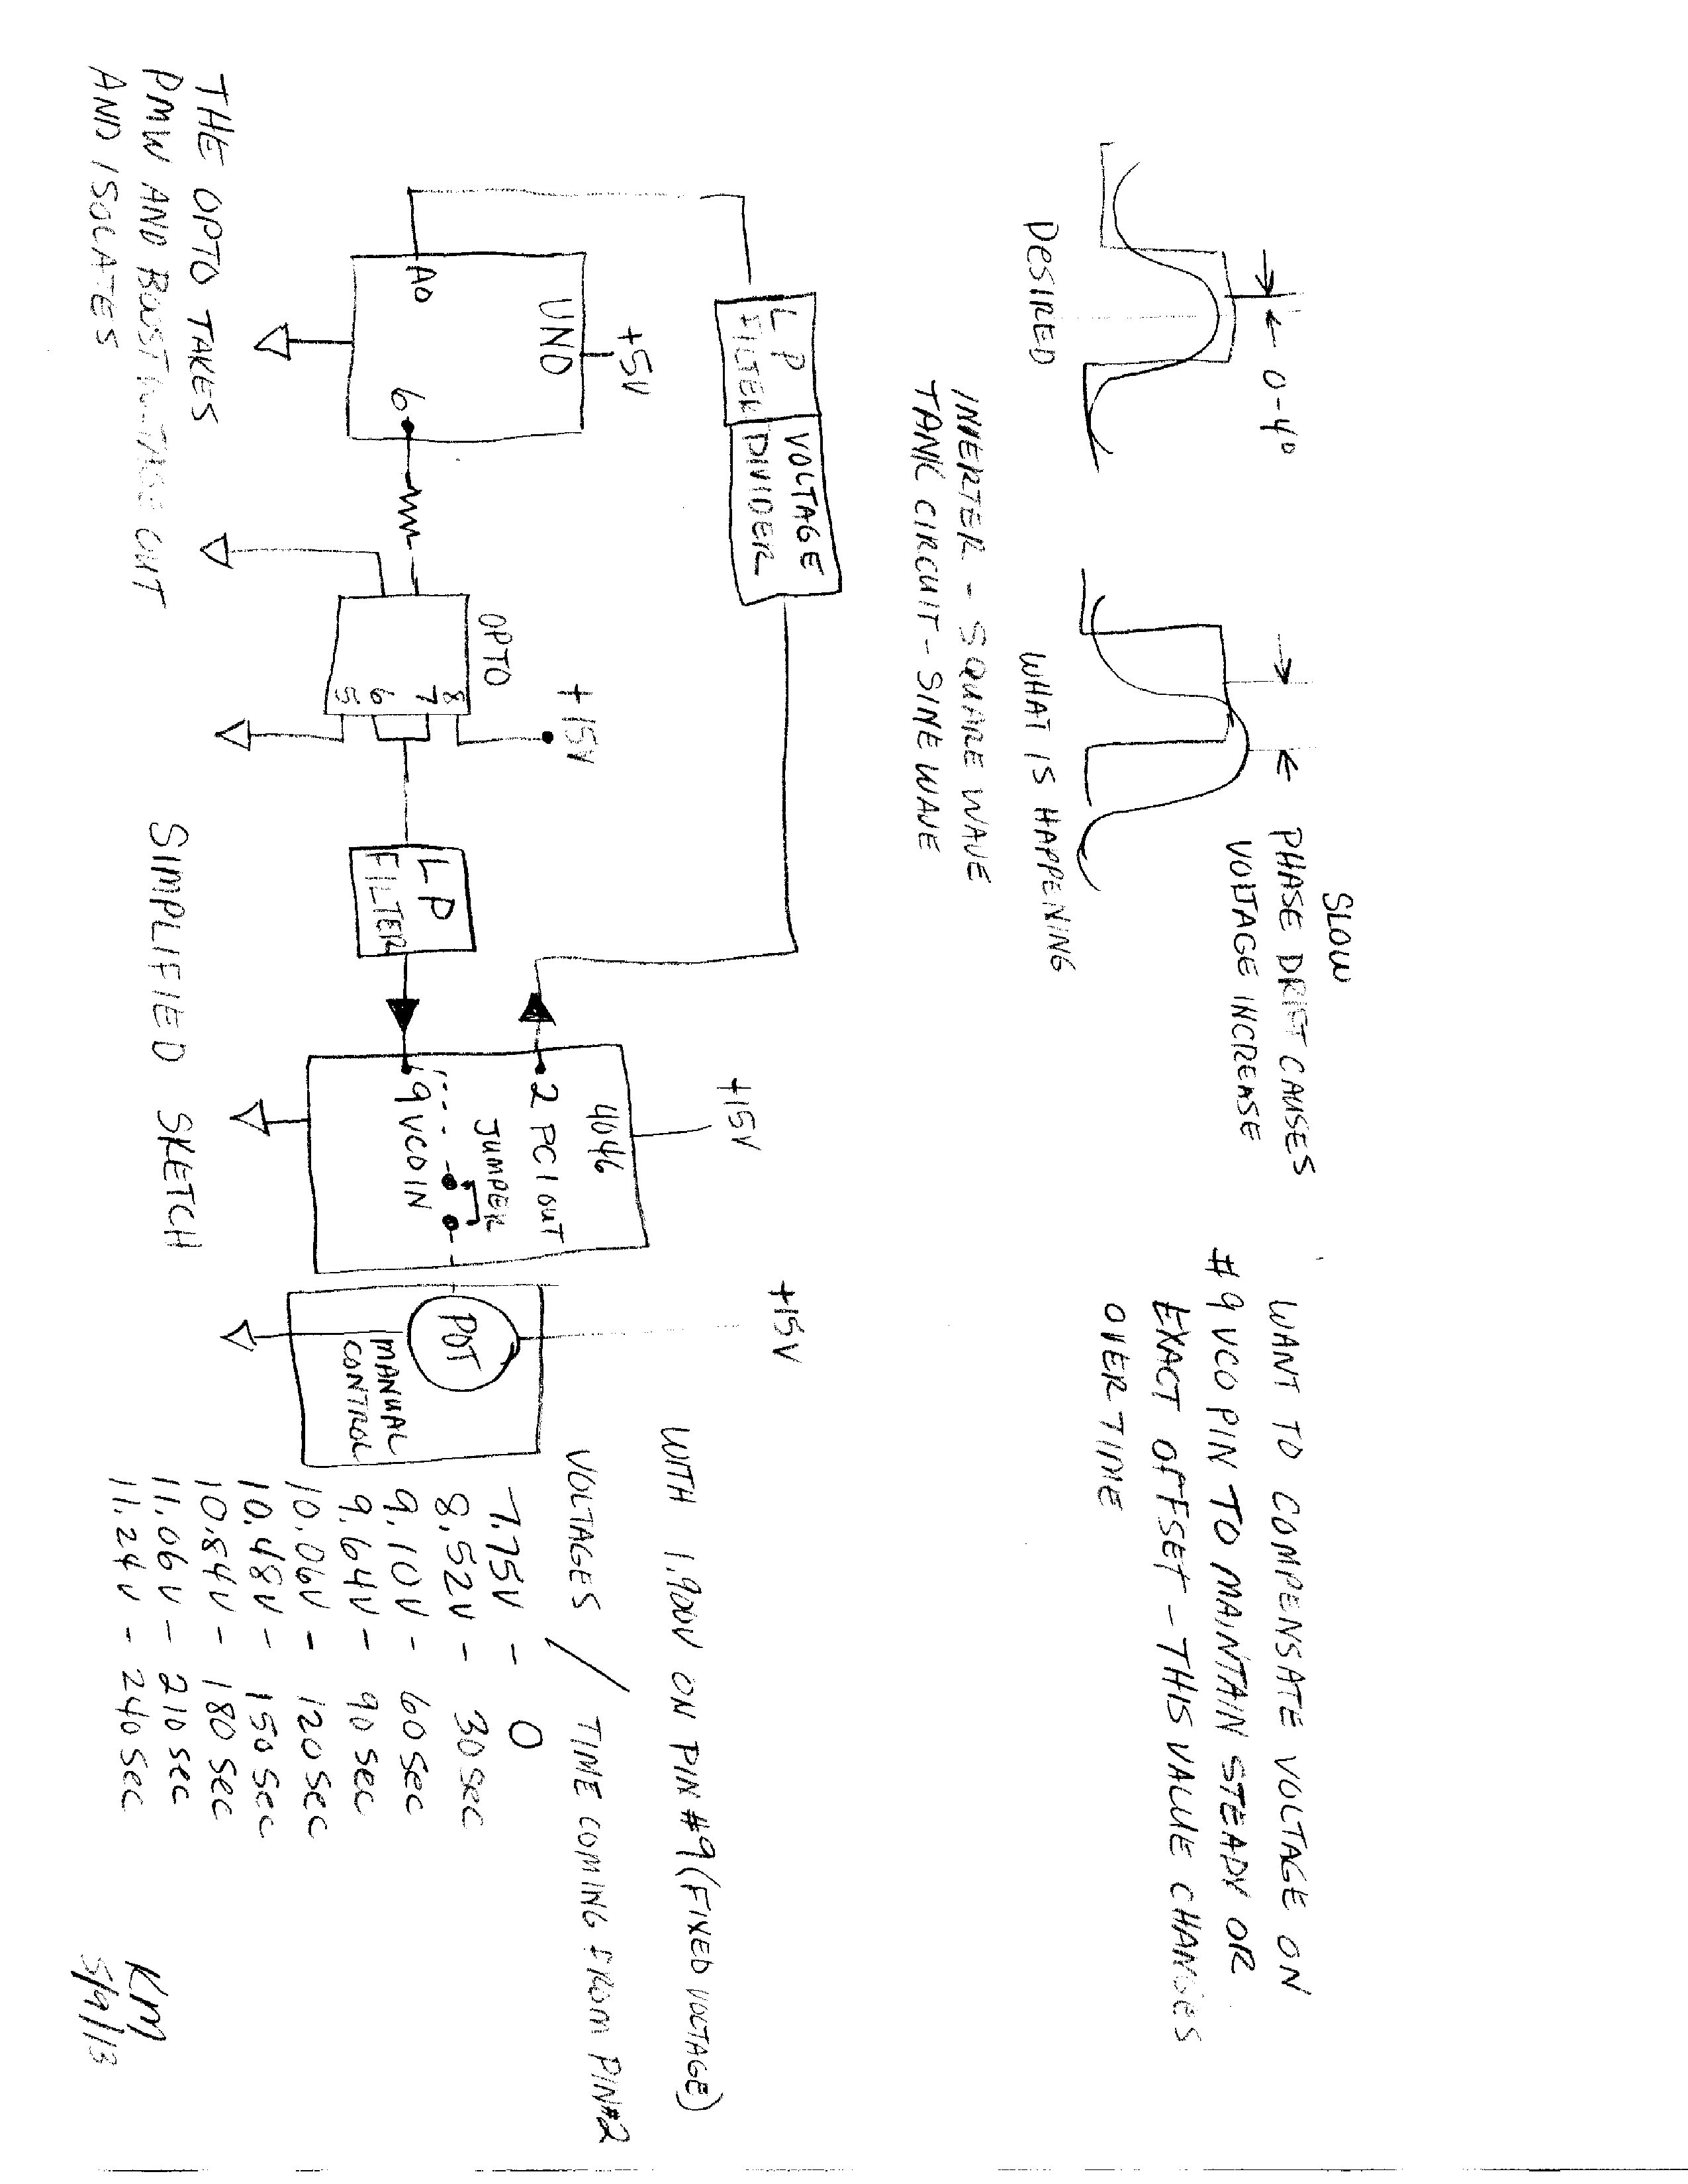 0-4°
DESIRED
SLOW
PHASE DRIFT CAUSES
VOLTAGE INCREASE
WHAT IS HAPPENING
INVERTER - SQUARE WAVE
TANK CIRCUIT - SINE WAVE
WANT TO COMPENSATE VOLTAGE ON
#9 VCO PIN TO MAINTAIN STEADY OR
EXACT OFFSET - THIS VALUE CHANGES
OVER TIME
LP
FILTER
VOLTAGE
DIVIDER
+5V
UNO
A0
6
OPTO
8
7
6
5
+15V
LP
FILTER
+15V
4046
2 PC1 OUT
JUMPER
9 VCO IN
+15V
POT
MANUAL
CONTROL
WITH 1.900V ON PIN #9 (FIXED VOLTAGE)
VOLTAGES / TIME COMING FROM PIN #2
7.75V - 0
8.52V - 30 SEC
9.10V - 60 SEC
9.64V - 90 SEC
10.06V - 120 SEC
10.48V - 150 SEC
10.84V - 180 SEC
11.06V - 210 SEC
11.24V - 240 SEC
THE OPTO TAKES
PMW AND BOOST VOLTAGE OUT
AND ISOLATES
SIMPLIFIED SKETCH
KM
5/9/13